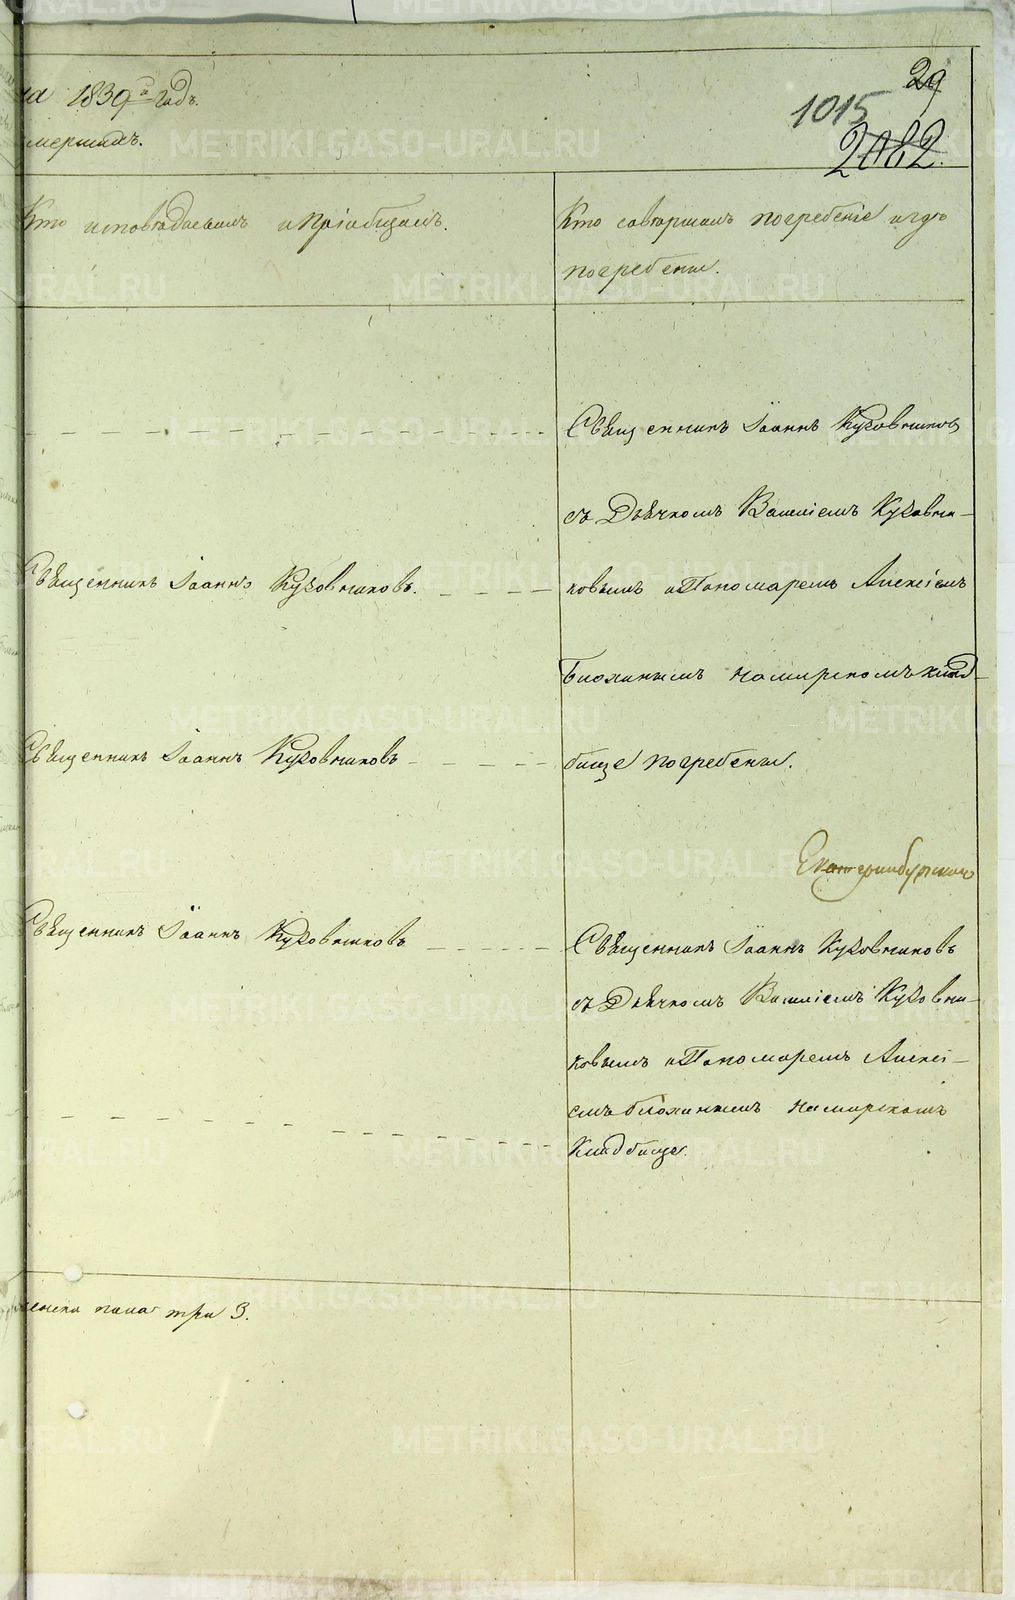 на 1839й годъ.
умершихъ.
29
1015
2082.
Кто исповѣдывалъ и пріобщалъ.
Кто совершалъ погребеніе и гдѣ
погребены.
Священникъ Іоаннъ Куховниковъ
съ Дьячкомъ Василіемъ Куховни-
ковымъ и Пономаремъ Алексіемъ
Блохинымъ на мирскомъ клад-
бище погребены.
Священникъ Іоаннъ Куховниковъ.
Священникъ Іоаннъ Куховниковъ
Екатеринбургскаго
Священникъ Іоаннъ Куховниковъ
Священникъ Іоаннъ Куховниковъ
съ Дьячкомъ Василіемъ Куховни-
ковымъ и Пономаремъ Алексі-
емъ Блохинымъ на мирскомъ
Кладбище.
женска пола три 3.
METRIKI.GASO-URAL.RU